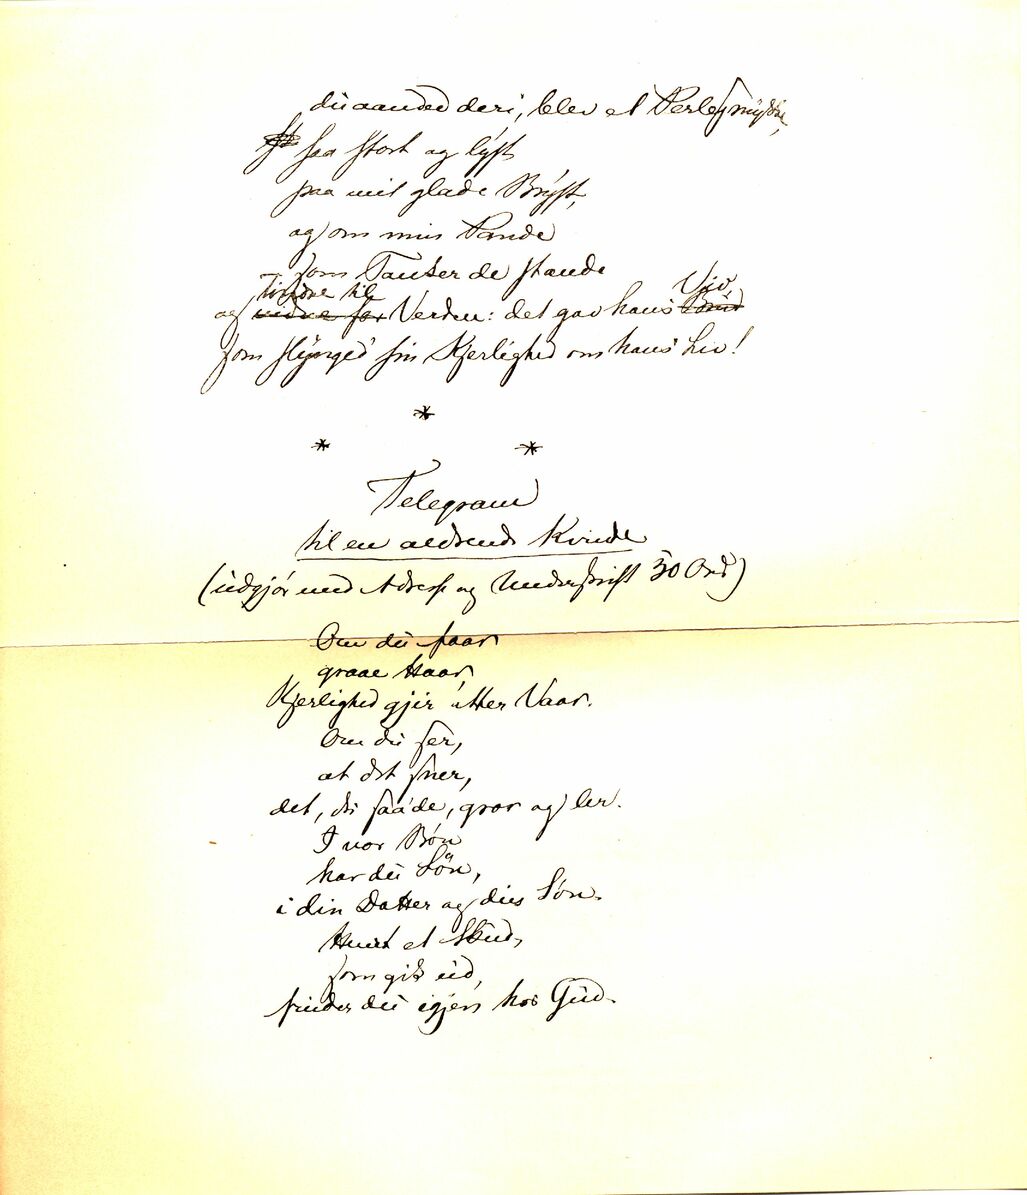 du aanded deri, blev et Perlesmykke,
saa stort og lyst
paa mit glade Bryst,
og om min Pande
som Tanker de stande
tindre til
Viv,
og vidne for Verden: det gav hans Brud
som slynged' sin Kjerlighed om hans Liv!
*
* *
Telegram
til en aldrende Kvinde
(udgjør med Adresse og Underskrift 50 Ord)
Om du faar
graae Haar,
Kjerlighed gjør atter Vaar.
Om du ser,
at det sner,
det, du saa'de, gror og ler.
I vor Bøn
har du Løn,
i din Datter og dies Søn.
Hvert et Skud,
som gik ud,
finder du igjen hos Gud.